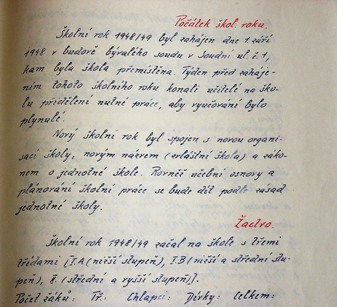 Počátek škol. roku.
Školní rok 1948/49 byl zahájen dne 1. září
1948 v budově bývalého soudu v Soudní ul. č. 1,
kam byla škola přemístěna. Týden před zaháje-
ním tohoto školního roku konali učitelé na ško-
lu přidělení nutné práce, aby vyučování bylo
plynulé.
Nový školní rok byl spojen s novou organi-
sací školy, novým názvem (zvláštní škola) a záko-
nem o jednotné škole. Rovněž učební osnovy a
plánování školní práce se bude dít podle zásad
jednotné školy.
Žactvo.
Školní rok 1948/49 začal na škole s třemi
třídami [I.A (nižší stupeň), I.B (nižší a střední stu-
peň), II. (střední a vyšší stupeň)].
Počet žáků: Tř.: Chlapci: Dívky: Celkem: